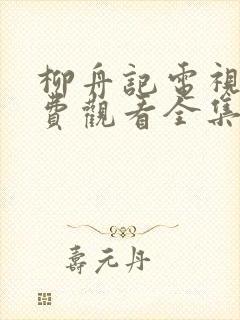 柳舟記電視
費觀看全集
壽元丹